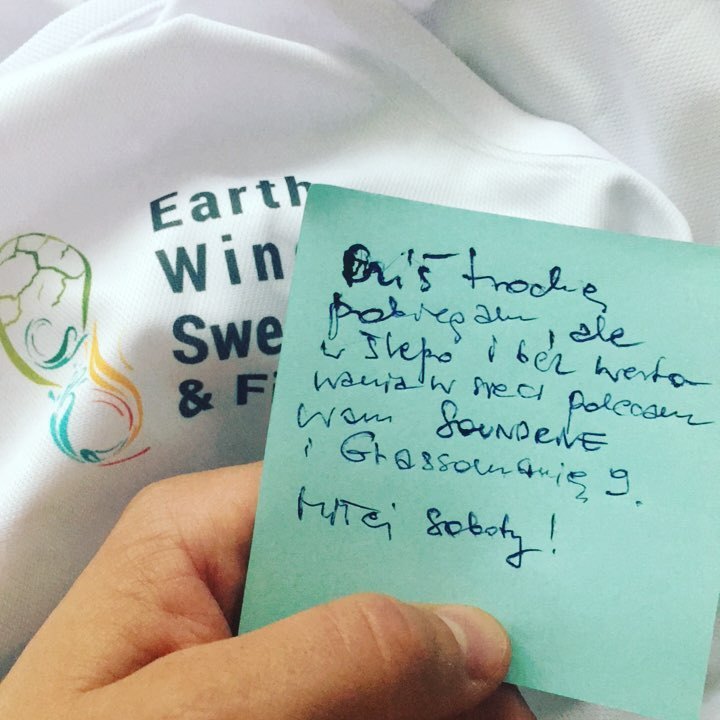 Earth
Win
Swe
& Fi
Dziś trochę
pobiegam, ale
w ślepo i bez werto
wania w sieci polecam
Wam SOUNDRIVE
i Grassomanię 9.
Miłej Soboty!